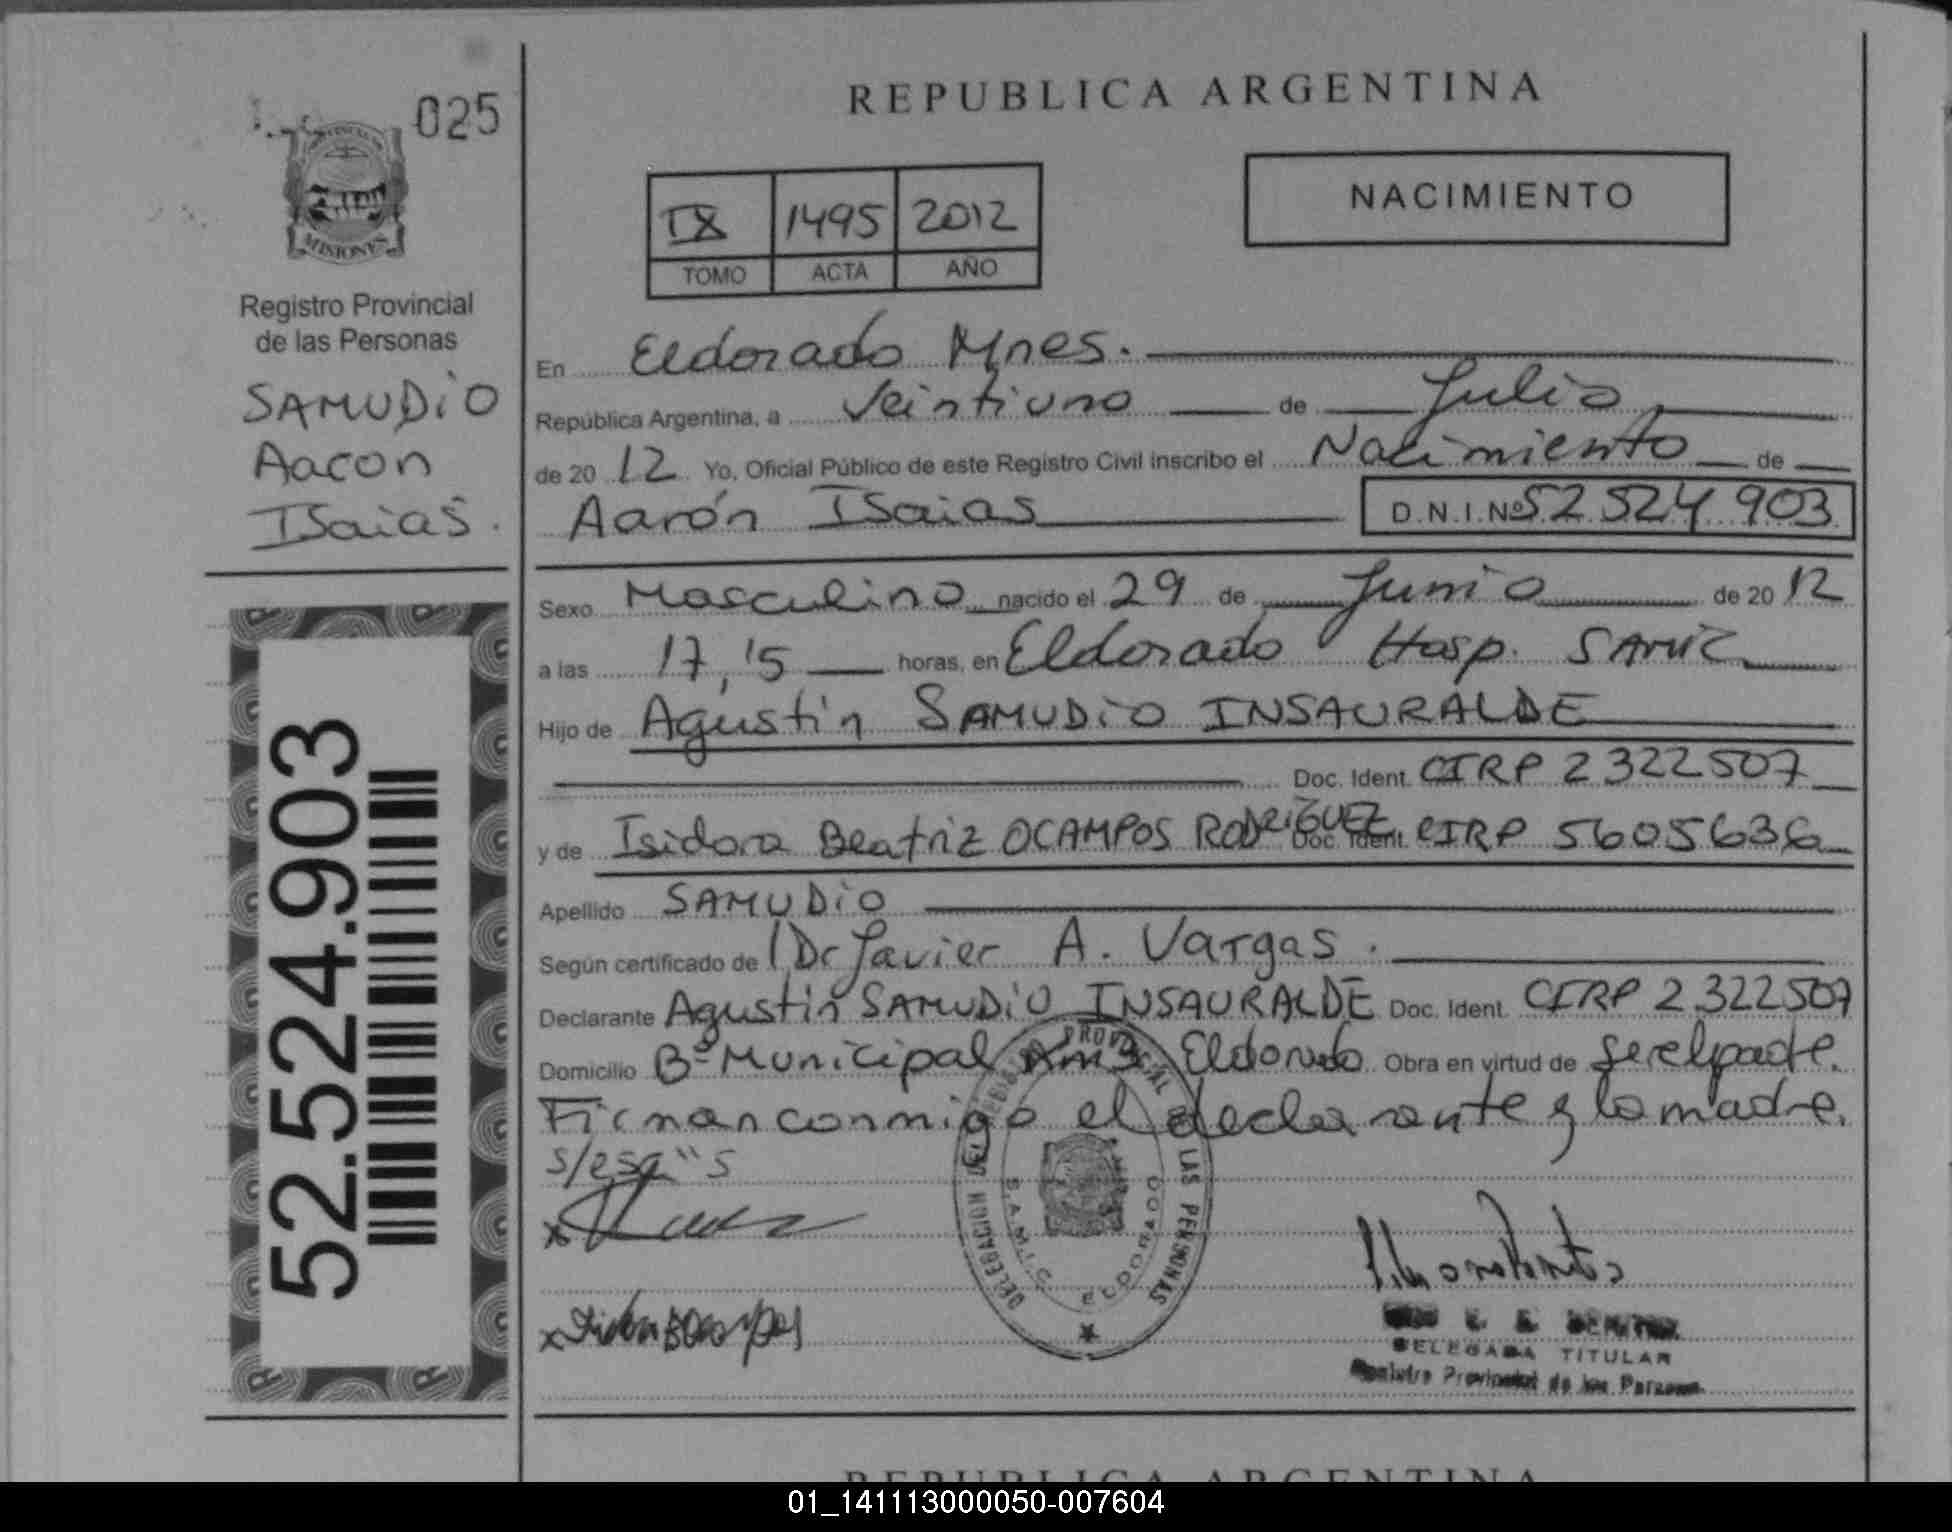 025
MISIONES
Registro Provincial
de las Personas
SAMUDIO
Aaron
Isaias.
52.524.903
REPUBLICA ARGENTINA
NACIMIENTO
IX 1495 2012
TOMO ACTA AÑO
En Eldorado Mnes.
República Argentina, a Veintiuno de Julio
de 20 12 Yo, Oficial Público de este Registro Civil inscribo el Nacimiento de
Aarón Isaias D.N.I.Nº 52.524.903
Sexo Masculino nacido el 29 de Junio de 20 12
a las 17,15 horas, en Eldorado Hosp. SAMIC
Hijo de Agustín SAMUDIO INSAURALDE
Doc. Ident. CIRP 2322507
y de Isidora Beatriz OCAMPOS RODRIGUEZ Doc. Ident. CIRP 5605636
Apellido SAMUDIO
Según certificado de Dr Javier A. Vargas.
Declarante Agustin SAMUDIO INSAURALDE Doc. Ident. CIRP 2322507
Domicilio Bº Municipal Km 3 Eldorado Obra en virtud de ser el padre.
Firman conmigo el declarante y la madre.
s/esq "s
DELEGACION REGISTRO PROVINCIAL DE LAS PERSONAS
S.A.M.I.C. ELDORADO
DELEGADA TITULAR
Registro Provincial de las Personas
REPUBLICA ARGENTINA
01_141113000050-007604